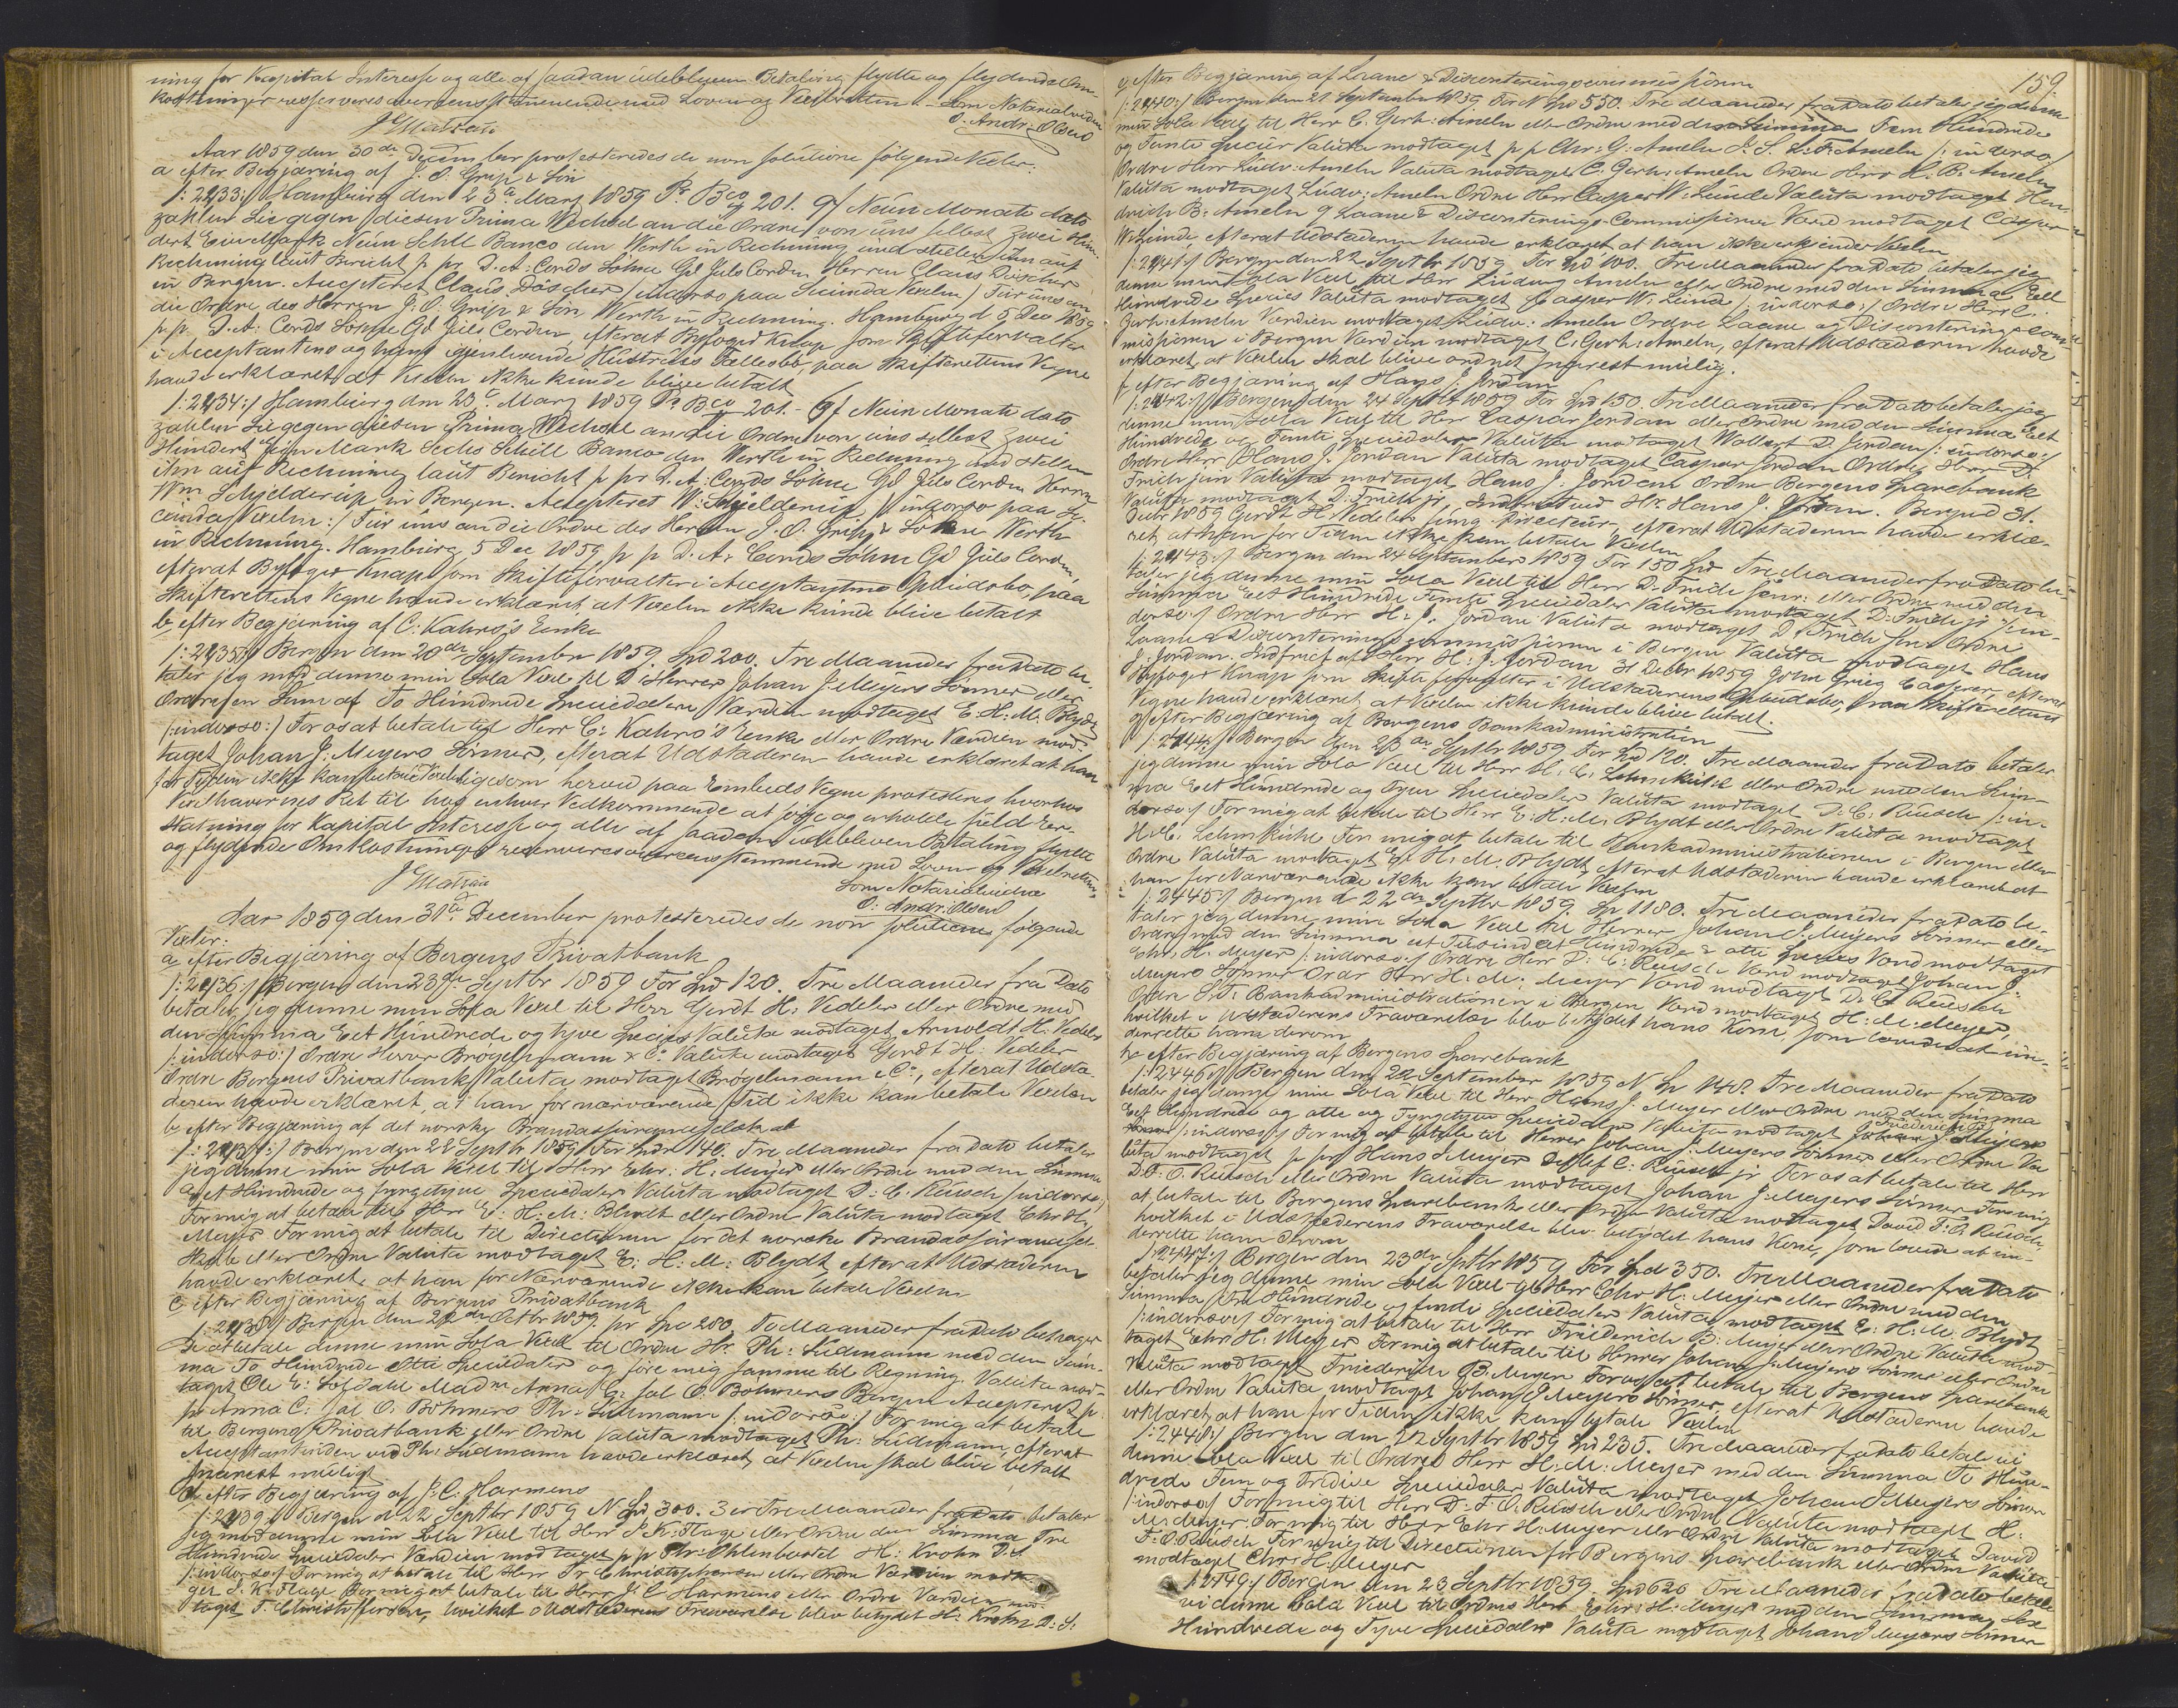 ning for Kapital Interesse og alle af saadan udebleven Betaling flydte og flydende Om-
kostninger reserveres overensstemmende med Loven og Vexelretten. - Som Notarialvidne
O. Andr: Olsen
Aar 1859 den 30de December protesteredes de non solutione følgende Vexler:
a efter Begjæring af J. O. Grip & Søn
/:2233:/ Hamburg den 23te Marz 1859 Pr Bco 201. 9/ Neun Monate dato
zahlen Sie gegen diesen Prima Wechsel an die Ordre von uns selbst Zwei Hun-
dert Ein Mark Neun Schll Banco den Werth in Rechnung und stellen ihn auf
Rechnung laut Bericht p pr D. A: Cords Söhne Gd Juls Cordes Herrn Claus Döscher
in Bergen. Accepteret Claus Döscher /indorso paa Secunda Vexelen/ Für uns an
die Ordre des Herren J. O. Grip & Søn Werth in Rechnung. Hamburg d 5 Dec 1859
p p. D. A: Cords Söhne Gd Juls Cordes, efterat Byfoged Knap som Skifteforvalter
i Acceptantens og hans igjenlevende Hustrues Fallesbo, paa Skifterettens Vegne
havde erklæret, at Vexelen ikke kunde blive betalt
/:2234:/ Hamburg den 23te Marz 1859 Pr Bco 201. - 6/ Neun Monate dato
zahlen Sie gegen diesen Prima Wechsel an die Ordre von uns selbst Zwei
Hundert Ein Mark Sechs Schill Banco den Werth in Rechnung und stellen
ihn auf Rechnung laut Bericht p pr D. A: Cords Söhne Gd Juls Cordes Herrn
Wm Schjelderup in Bergen. Accepteret W: Schjelderup /indorso paa Se-
cunda Vexelen:/ Für uns an die Ordre des Herren J. O. Grip & Sohne Werth
in Rechnung. Hamburg 5 Dec 1859, p p D. A: Cords Söhne Gd Juls Cordes,
efterat Byfoged Knap som Skifteforvalter i Acceptantens Opbudsbo, paa
Skifterettens Vegne havde erklæret, at Vexelen ikke kunde blive betalt
b efter Begjæring af C: Kahrs's Enke
/:2235:/ Bergen den 20de September 1859. Spd 200. Tre Maaneder fra Dato be
taler jeg mod denne min Sola Vexel til D Herrer Johan J. Meyers Sønner eller
Ordre en Sum af To Hundrede Speciedaler Værdien modtaget E. H. M. Blydt
/:indorso:/ For os at betale til Herr C: Kahrs's Enke eller Ordre Værdien mod-
taget Johan J: Meyers Sønner, efterat Udstederen havde erklæret at han
for Tiden ikke kan betale Vexel ligesom herved paa Embeds Vegne protesteres, hvorhos
Vexelhaverens Ret til hos enhver Vedkommende at søge og erholde fuld Er-
statning for Kapital Interesse og alle af saadan udebleven Betaling flydte
og flydende Omkostninger reserveres overensstemmende med Loven og Vexelretten,
Som Notarialvidne
O: Andr: Olsen
Aar 1859 den 31te December protesteredes de non solutione følgende
Vexler:
a efter Begjæring af Bergens Privatbank
/:2236:/ Bergen den 23de Septbr 1859 For Spd 120. Tre Maaneder fra Dato
betaler jeg denne min Sola Vexel til Herr Gerdt H. Vedeler eller Ordre med
den Summa Eet Hundrede og tyve Species Valuta modtaget Arnoldt H. Vedeler
/:indorso:/ Ordre Herrer Brøgelmann & Co Valuta modtaget Gerdt H. Vedeler
Ordre Bergens Privatbank Valuta modtaget Brøgelmann & Co, efterat Udste-
deren havde erklæret, at han for nærværende Tid ikke kan betale Vexelen
b efter Begjæring af det norske Brandassuranceselskab
/:2237:/ Bergen den 22 Septbr 1859 For Spdr 140. Tre Maaneder fra Dato betaler
jeg denne min Sola Vexel til Herr Chr: H: Meyer eller Ordre med den Summa
eet Hundrede og fyrgetyve Speciedaler Valuta modtaget D: C: Reusch /indorso:/
For mig at betale til Herr E: H: M: Blydt eller Ordre Valuta modtaget Chr H.
Meyer For mig at betale til Directionen for det norske Brandassurancesel-
skab eller Ordre Valuta modtaget E: H: M: Blydt efter at Udstederen
havde erklæret, at han for Nærværende ikke kan betale Vexelen
c efter Begjæring af Bergens Privatbank
/:2238:/ Bergen den 29de Octbr 1859. pr Spe 280 To Maaneder fra Dato behager
De at betale denne min Sola Vexel til Ordre Hr. Ph: Lüdmann med den Sum-
ma To Hundrede Otte Speciedaler og føre mig samme til Regning. Valuta mod-
taget Ole E: Lofdahl Madm Anna C: sal O. Bøhmers Bergen Accepteret p.
p. Anna C: sal O. Bøhmers Ph: Lüdmann /:indorso:/ For mig at betale
til Bergens Privatbank eller Ordre Valuta modtaget Ph: Lüdmann, efterat
Acceptantinden ved Ph: Lüdmann havde erklæret, at Vexelen skal blive betalt
snarest muligt
d efter Begjæring af J: C. Harmens
/:2239:/ Bergen d 22 Septbr 1859 N Spd 300. 3 er Tre Maaneder fra Dato betaler
jeg mod denne min Sola Vexel til Herr S. K: Flage eller Ordre den Summa Tre
Hundrede Speciedaler Værdien modtaget p p Chr: Ohlenbostel H: Krohn D. S.
/:indorso:/ For mig at betale til Herr Fr Christophersen eller Ordre Værdien modta-
get S. K. Flage For mig at betale til Herr J: C. Harmens eller Ordre Værdien mod-
taget F. Christoffersen, hvilket i Udstederens Fraværelse blev betydet Hr: Krohn D: S:
159.
e efter Begjæring af Laane & Disconteringscommissionen
/:2240:/ Bergen den 21 September 1859. For N Spd 550. Tre Maaneder fra Dato betaler jeg denne
min Sola Vexel til Herr C. Gerh: Ameln eller Ordre med den Summa Fem Hundrede
og Femti Specier Valuta modtaget p p Chr: G: Ameln J. S. L: F: Ameln /:indorso/
Ordre Herr Ludv: Ameln Valuta modtaget C. Gerh: Ameln Ordre Herr H. B. Ameln
Valuta modtaget Ludv: Ameln Ordre Herr Casper W: Lunde Valuta modtaget Hen-
drich B: Ameln Laane & Disconterings-Commissionen Værd modtaget Casper
W: Lunde, efterat Udstederen havde erklæret at han ikke erkjender Vexelen
/:2241:/ Bergen den 22 Septbr 1859 For Spd 100. Tre Maaneder fra Dato betaler jeg
denne min Sola Vexel til Herr Ludvig Ameln eller Ordre med den Summa Eet
Hundrede Species Valuta modtaget Casper W. Lunde /:indorso:/ Ordre Herr C.
Gerh: Ameln Værdien modtaget Ludv: Ameln Ordre Laane og Disconterings-com-
missionen i Bergen Værdien modtaget C. Gerh: Ameln, efterat Udstederen havde
erklæret, at Vexelen skal blive ordnet snarest mulig.
f efter Begjæring af Hans J. Jordan
/:2242:/ Bergen den 24 Septbr 1859 For Spd 150. Tre Maaneder fra Dato betaler jeg
denne min Sola Vexel til Herr Caspar Jordan eller Ordre med den Summa Eet
Hundrede og Femti Speciedaler Valuta modtaget Wollert D Jordan /:indorso:/
Ordre Herr Hans J. Jordan Valuta modtaget Caspar Jordan Ordre Herr D.
Friele jun Valuta modtaget Hans J: Jordan Ordre Bergens Sparebank
Valuta modtaget D. Friele jr, Indfriet ved Hr. Hans J. Jordan. Bergen d 31.
Decbr 1859 Gerdt H. Vedeler fung Directeur, efterat Udstederen havde erklæ-
ret, at han for Tiden ikke kan betale Vexelen
/:2243:/ Bergen den 24 September 1859 For 150 Spd Tre Maaneder fra Dato be-
taler jeg denne min Sola Vexel til Herr D. Friele junr: eller Ordre med den
Summa Eet Hundrede Femti Speciedaler Valuta modtaget D: Friele jr /:in-
dorso:/ Ordre Herr H: J. Jordan Valuta modtaget D. Friele jun Ordre
Laane & Disconteringscommissionen i Bergen Valuta modtaget Hans
J: Jordan. Indfriet af Herr H: J. Jordan 31 Decbr 1859 John Grieg Casserer, efterat
Byfoged Knap som Skifteforvalter i Udstederens Opbudsbo, paa Skifterettens
Vegne havde erklæret, at Vexelen ikke kunde blive betalt.
g efter Begjæring af Bergens Bankadministration
/:2244:/ Bergen den 23de Septbr 1859 For Spd 120. Tre Maaneder fra Dato betaler
jeg denne min Sola Vexel til Herr H. C. Lehmkuhl eller Ordre med den Sum-
ma Eet Hundrede og tyve Speciedaler Valuta modtaget D: C. Reusch /:in-
dorso:/ For mig at betale til Herr E: H: M: Blydt eller Ordre Valuta modtaget
H: C. Lehmkuhl For mig at betale til Bankadministrationen i Bergen eller
Ordre Valuta modtaget E: H: M: Blydt, efterat Udstederen havde erklæret at
han for Nærværende ikke kan betale Vexelen
/:2245:/ Bergen d 22de Septbr 1859. Sp 1180. Tre Maaneder fra Dato be-
taler jeg denne min Sola Vexel til Herrer Johan J. Meyers Sønner eller
Ordre med den Summa eet Tusind et Hundrede & otte Species Værd modtaget
Chr. H. Meyer /:indorso:/ Ordre Herr D: C: Reusch Værd modtaget Johan J.
Meyers Sønner Ordr Herr H: M: Meyer Værd modtaget D. C. Reusch
Ordre S. T. Bankadministrationen i Bergen Værd modtaget H: M: Meyer,
hvilket i Udstederens Fraværelse blev betydet hans Kone, som lovede at un-
derrette ham derom
h efter Begjæring af Bergens Sparebank
/:2246:/ Bergen den 22 September 1859 N Sp 148. Tre Maaneder fra Dato
betaler jeg denne min Sola Vexel til Herr Hans J. Meyer eller Ordre med den Summa
Eet Hundrede og otte og Fyrgetyve Speciedaler Valuta modtaget Friederich B. Meyer
/:indorso:/ For mig at betale til Herrer Johan J. Meyers Sønner eller Ordre Va-
luta modtaget p pr Hans J Meyer Detlef C. Reusch jr For os at betale til Herr
D. F. O. Reusch eller Ordre Valuta modtaget Johan J. Meyers Sønner For mig
at betale til Bergens Sparebank eller Ordre Valuta modtaget David F: O. Reusch,
hvilket i Udstederens Fraværelse blev betydet hans Kone, som lovede at un-
derrette ham derom
/:2247:/ Bergen den 23de Septbr 1859 For Spd 350. Tre Maaneder fra Dato
betaler jeg denne min Sola Vexel til Herr Chr H. Meyer eller Ordre med den
Summa Tre Hundrede og femti Speciedaler Valuta modtaget E: H: M. Blydt
/:indorso:/ For mig at betale til Herr Friederich B: Meyer eller Ordre Valuta mod
taget Chr H. Meyer For mig at betale til Herrer Johan J Meyers Sønner eller Ordre
Valuta modtaget Friederich B. Meyer For os at betale til Bergens Sparebank
eller Ordre Valuta modtaget Johan J Meyers Sønner, efterat Udstederen havde
erklæret, at han for Tiden ikke kan betale Vexelen
/:2248:/ Bergen den 22 Septbr 1859 Spd 235. Tre Maaneder fra Dato betale vi
denne Sola Vexel til Ordre Herr H: M: Meyer med den Summa To Hun-
drede Fem og Tredive Speciedaler Valuta modtaget Johan J Meyers Sønner
/:indorso:/ For mig til Herr D: F. O. Reusch eller Ordre Valuta modtaget H.
M. Meyer. For mig til Herr Chr H. Meyer eller Ordre Valuta modtaget David
F. O. Reusch For mig til Directionen for Bergens Sparebank eller Ordre Valuta
modtaget Chr. H. Meyer
/:2249:/ Bergen den 23 Septbr 1859. Spd 620 Tre Maaneder fra Dato betale
vi denne Sola Vexel til Ordres Herr Chr: H: Meyer med den Summa Sex
Hundrede og Tyve Speciedaler Valuta modtaget Johan J Meyers Sønner